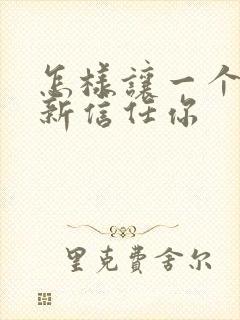 怎樣讓一个
新信任你
里克費舍尔